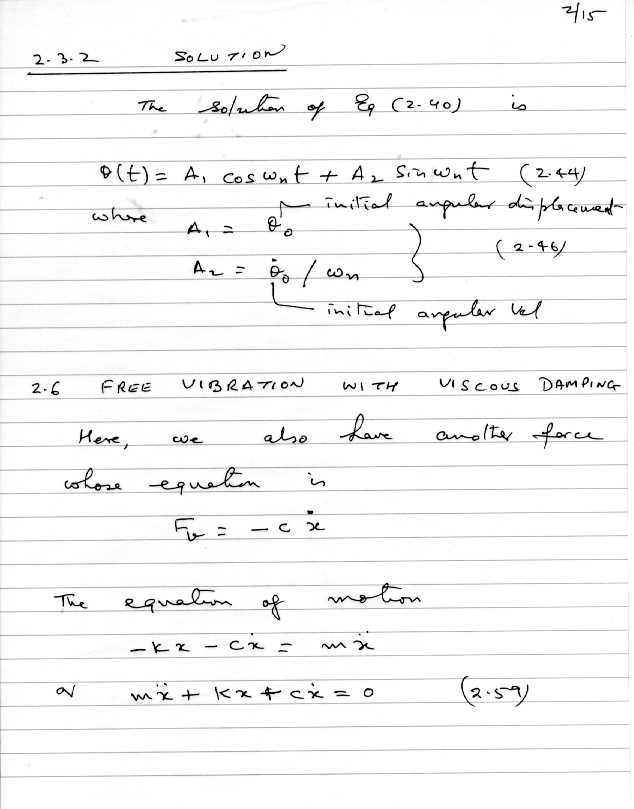 2/15
2.3.2 SOLUTION
The solution of Eq (2.40) is
θ(t) = A₁ cos ωnt + A₂ sin ωnt (2.44)
where A₁ = θ₀ initial angular displacement
A₂ = θ̇₀ / ωn } (2.46)
initial angular vel
2.6 FREE VIBRATION WITH VISCOUS DAMPING
Here, we also have another force
whose equation is
Fv = - c ẋ
The equation of motion
-kx - cẋ = mẍ
or mẍ + kx + cẋ = 0 (2.59)